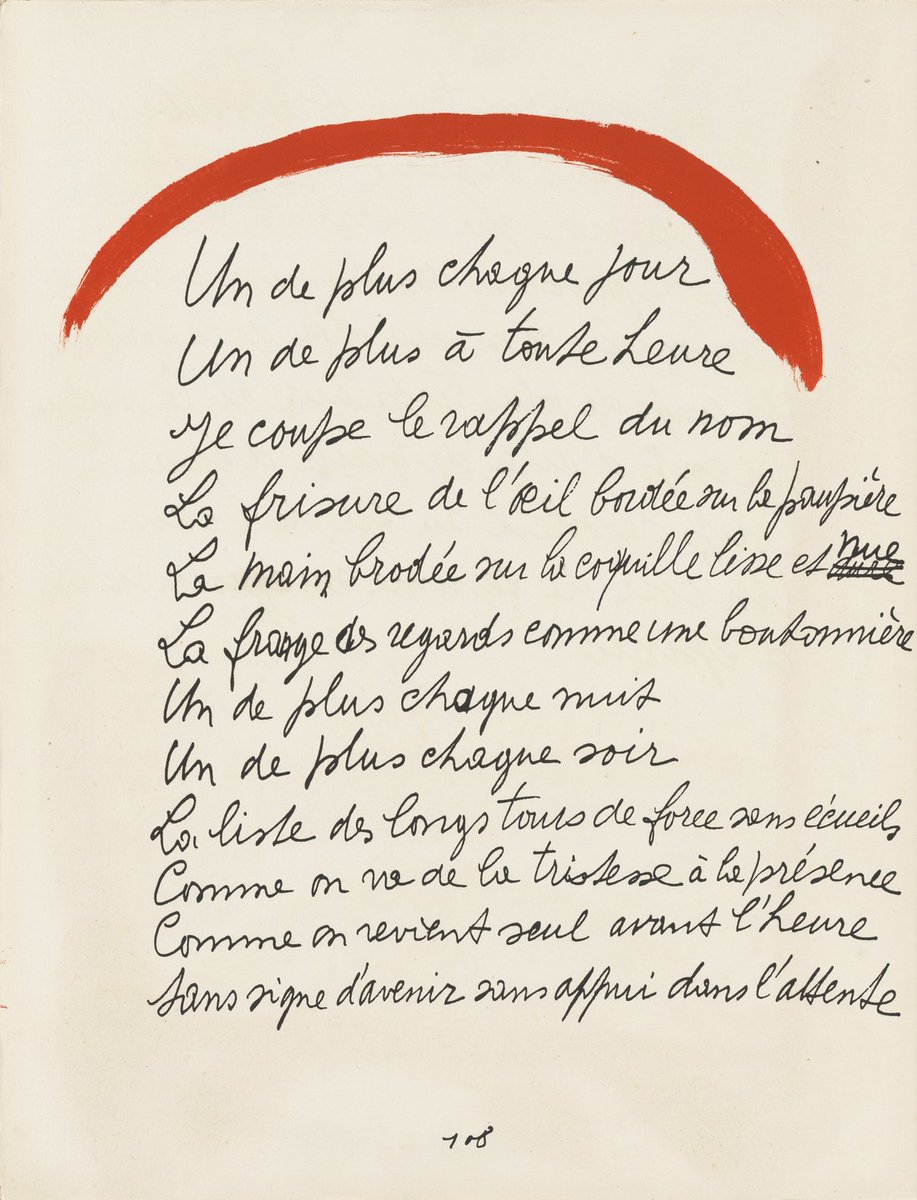 Un de plus chaque jour
Un de plus à toute heure
Je coupe le rappel du nom
La frisure de l'œil bordée sur la paupière
La main brodée sur la coquille lisse et nue
La frange des regards comme une boutonnière
Un de plus chaque nuit
Un de plus chaque soir
La liste des longs tours de force sans écueils
Comme on va de la tristesse à la présence
Comme on revient seul avant l'heure
Sans signe d'avenir sans appui dans l'attente
108